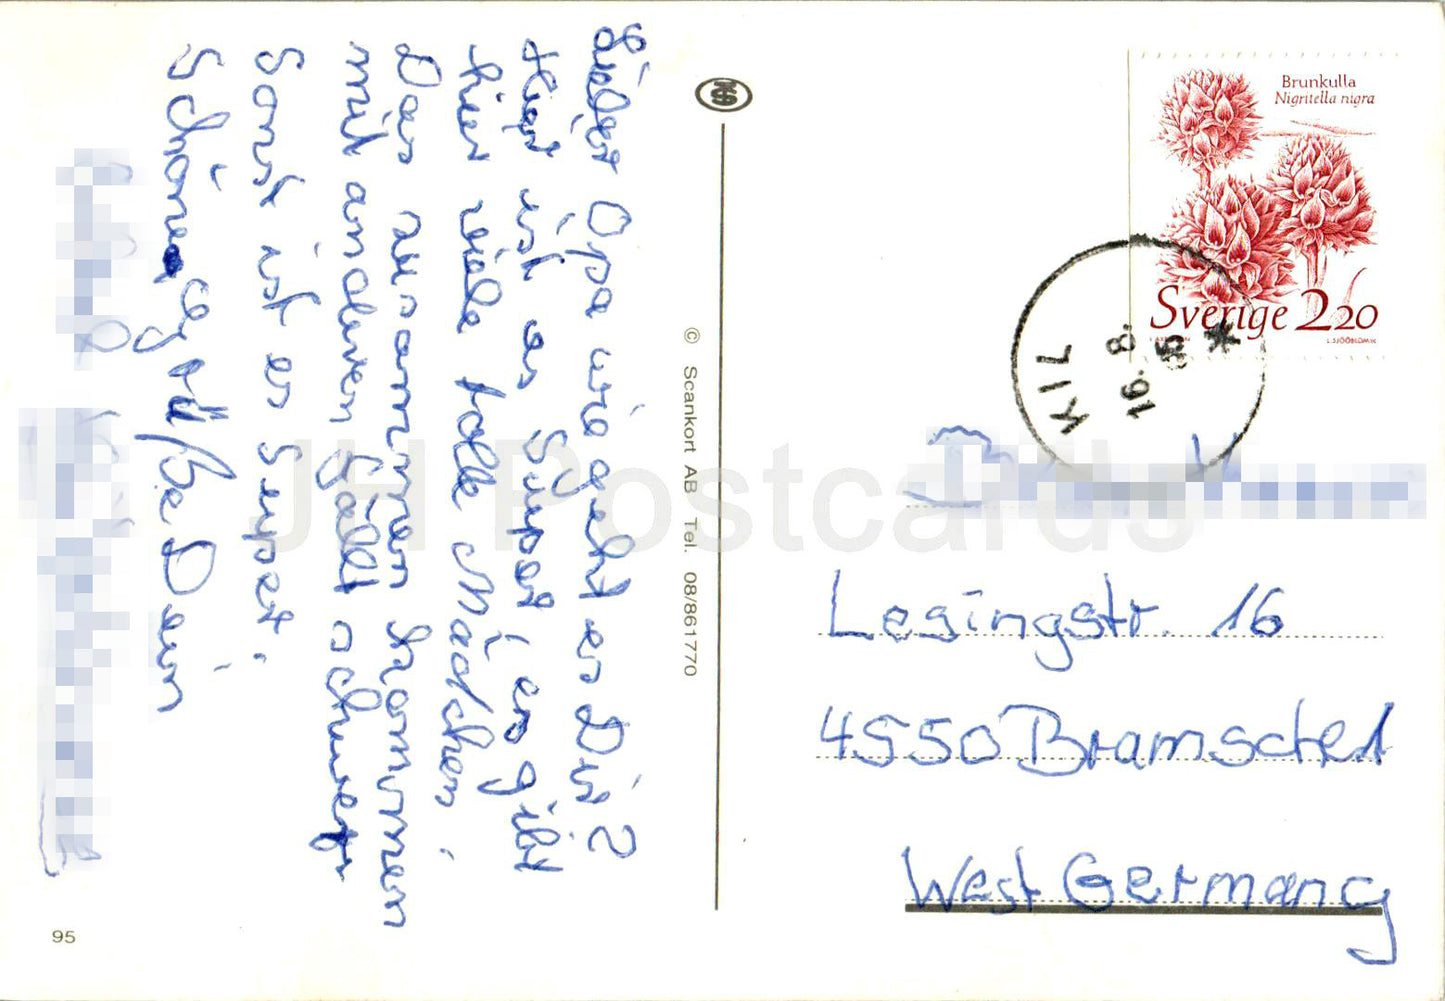 Lieber Opa wie geht es Dir?
Hier ist es Super, es gibt
hier viele tolle Mädchen.
Das zusammen kommen
mit anderen fällt schwer
Sonst ist es Super.
Schöne Grüße Dein
95
© Scankort AB Tel. 08/861770
Brunkulla
Nigritella nigra
Sverige 220
L. SJÖÖBLOM SC
KIL
16.8.
85
JH Postcards
Legingstr. 16
4550 Bramsche 1
West Germany